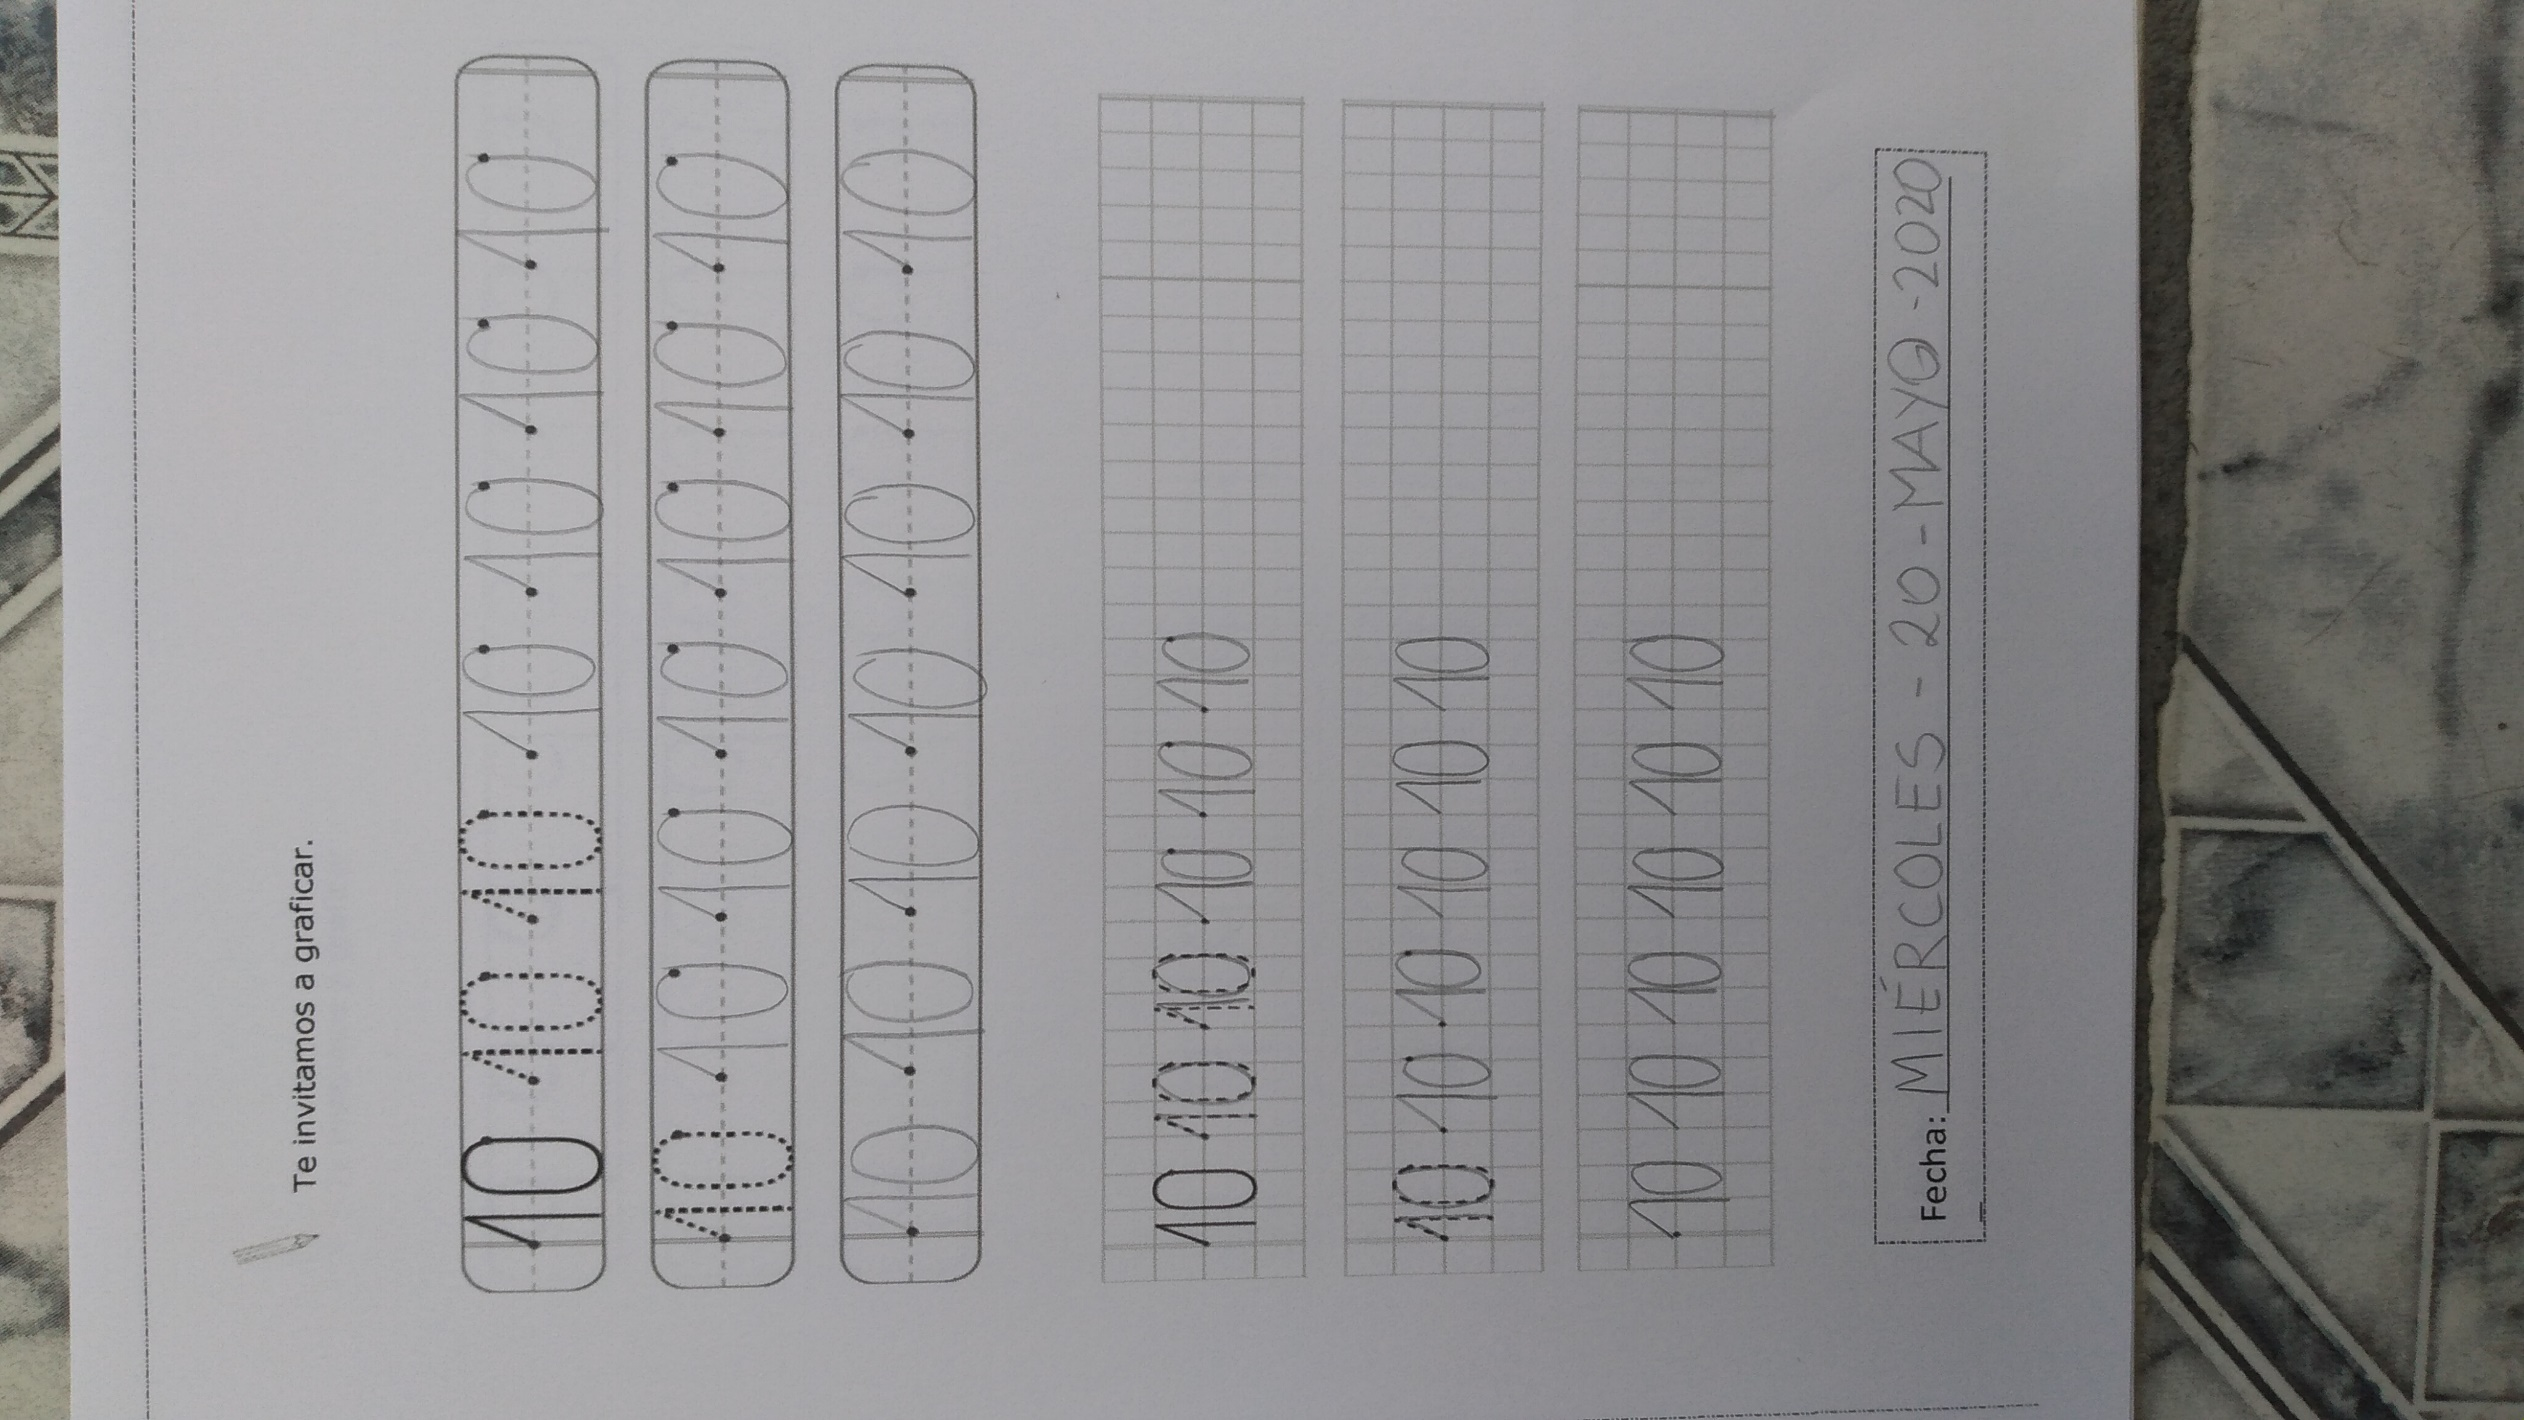 Te invitamos a graficar.
10 10 10 10 10 10 10
10 10 10 10 10 10 10
10 10 10 10 10 10 10
10 10 10 10 10 10
10 10 10 10 10 10
10 10 10 10 10 10
Fecha: MIÉRCOLES - 20 - MAYO - 2020